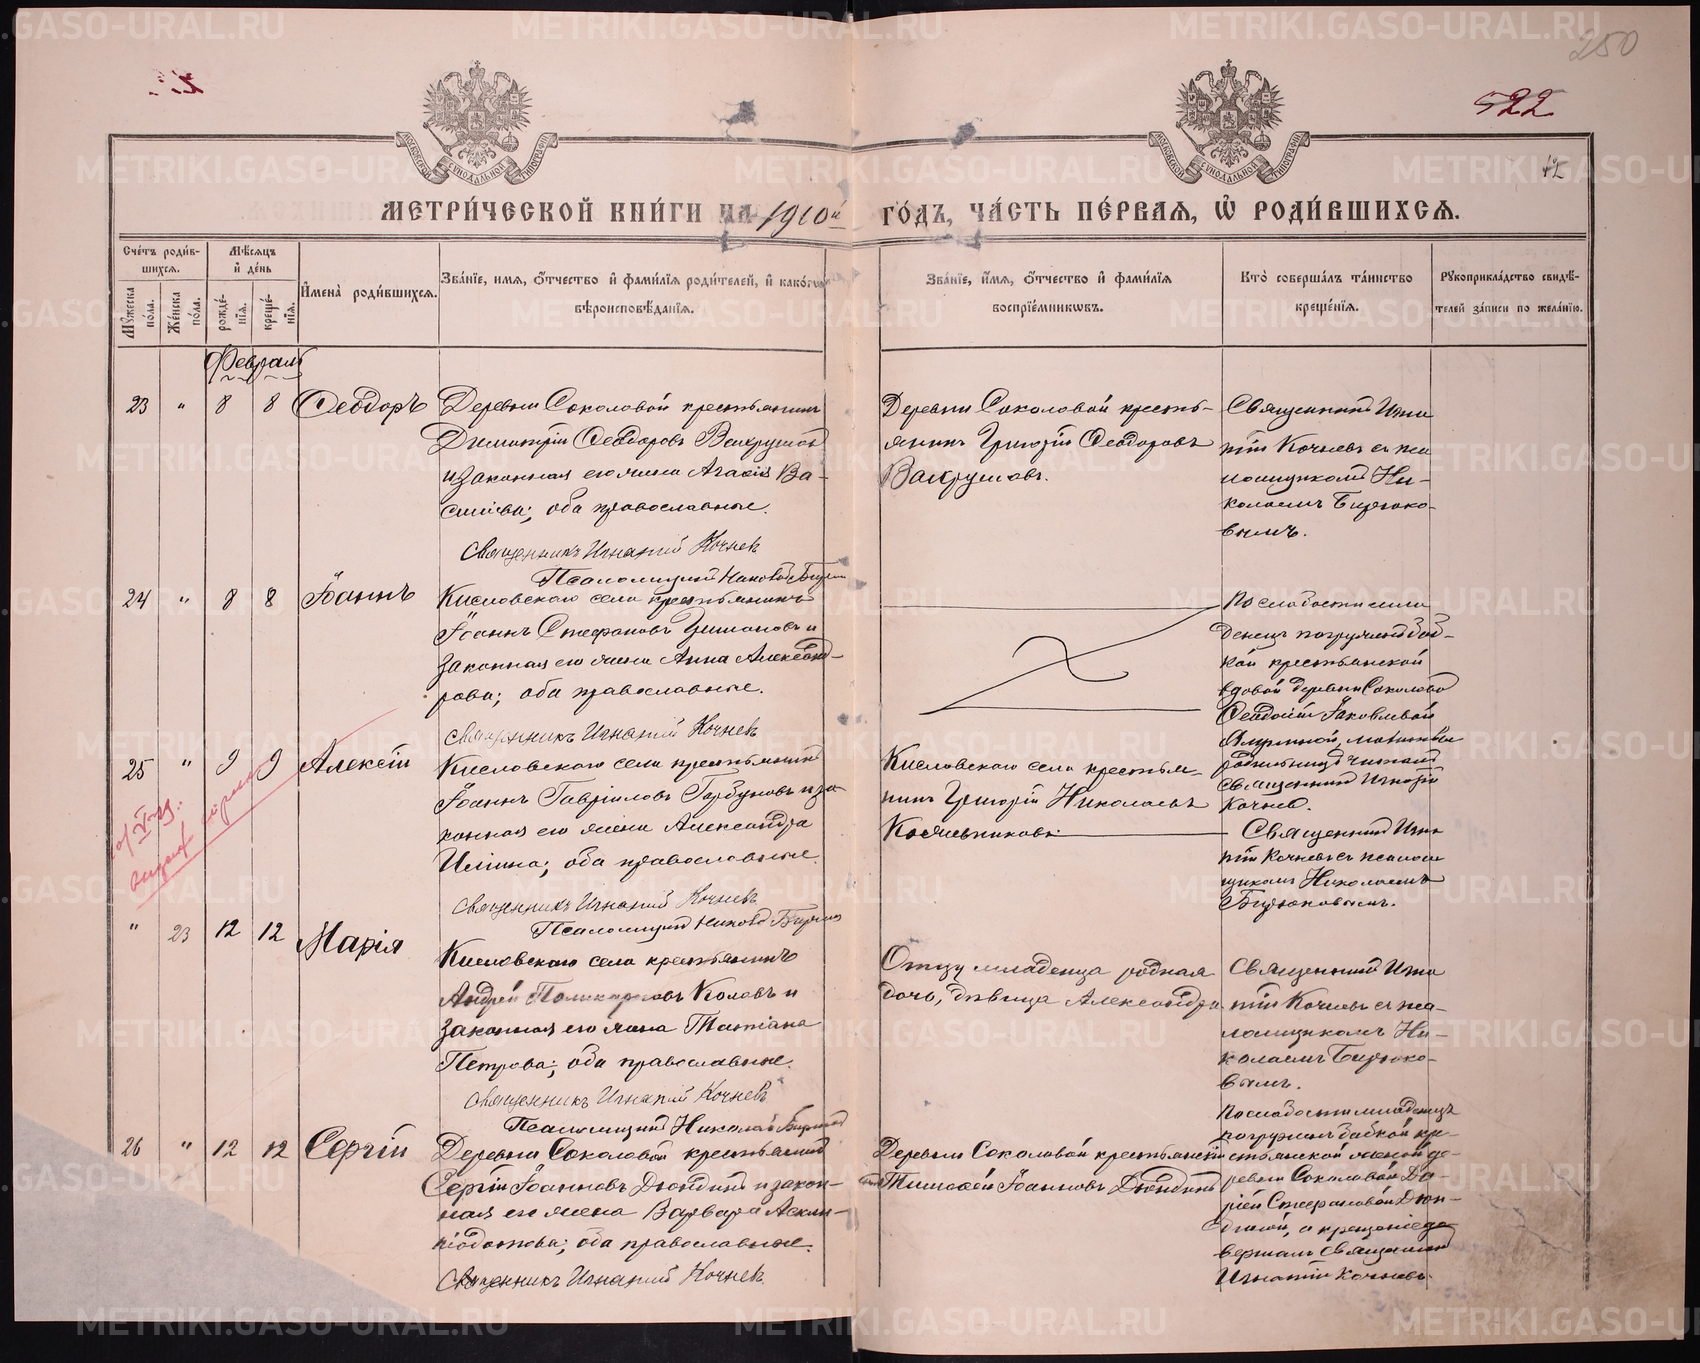 250
522
МЕТРИ́ЧЕСКОЙ КНИ́ГИ НА 1910й ГО́ДЪ, ЧА́СТЬ ПЕ́РВАЯ, Ѽ РОДИ́ВШИХСЯ.
Сче́тъ роди́вшихся.
Му́жеска по́ла.
Же́нска по́ла.
Мѣ́сяцъ и҆ де́нь
рожде́нїя.
креще́нїя.
И҆мена̀ роди́вшихся.
Зва́нїе, имя, ѻ҆́тчество и҆ фами́лїя роди́телей, и҆ како́гѡ
вѣроисповѣ́данїя.
Зва́нїе, и҆́мя, ѻ҆́тчество и҆ фами́лїя
воспрїе́мникѡвъ.
Кто̀ соверша́лъ та́инство
креще́нїя.
Рꙋкоприкла́дство свидѣ́-
телей за́писи по жела́нїю.
Февраль
23 " 8 8 Ѳеодоръ
Деревни Соколовой крестьянинъ
Димитрій Ѳеодоровъ Вахрушевъ
и законная его жена Агаѳія Ва-
сильева; оба православные.
Священникъ Игнатий Кочнев
Деревни Соколовой кресть-
янинъ Григорій Ѳеодоровъ
Вахрушевъ.
Священникъ Игна
тій Кочневъ съ пса
ломщикомъ Ни-
колаемъ Бирюко-
вымъ.
24 " 8 8 Іоаннъ
Кисловскаго села крестьянинъ
Іоаннъ Стефановъ и
законная его жена Анна Александ-
рова; оба православные.
Священникъ Игнатий Кочнев
По слабости мла
денецъ погруженъ баб-
кой крестьянской
вдовой деревни Соколовой
Ѳеодосіей Іаковлевой
молитвы
родильницѣ читалъ
священникъ Игнатій
Кочнев.
25 " 9 9 Алексій
Кисловскаго села крестьянинъ
Іоаннъ Гавріиловъ Горбуновъ и за-
конная его жена Александра
Ильина; оба православные.
Священникъ Игнатий Кочнев
Псаломщикъ Николай Бирюков
Кисловскаго села крестья-
нинъ Григорій Николаевъ
Кожевниковъ
Священникъ Игна
тій Кочневъ съ псалом
щикомъ Николаемъ
Бирюковымъ.
" 23 12 12 Марія
Кисловскаго села крестьянинъ
Андрей Поликарповъ Коловъ и
законная его жена Татіана
Петрова; оба православные.
Священникъ Игнатий Кочнев
Псаломщикъ Николай Бирюков
Отцу младенца родная
дочь, дѣвица Александра
Священникъ Игна
тій Кочневъ съ пса-
ломщикомъ Ни-
колаемъ Бирюко-
вымъ.
26 " 12 12 Сергій
Деревни Соколовой крестьянинъ
Сергій Іоанновъ Дюндинъ и закон-
ная его жена Варвара Аскли-
піодотова; оба православные.
Священникъ Игнатий Кочнев
Деревни Соколовой крестьянинъ
Тимоѳей Іоанновъ Дюндинъ
По слабости младенецъ
погруженъ бабкой кре-
стьянской женой де-
ревни Соколовой Да-
ріей Стефановой Дюн-
диной, а крещеніе до
вершалъ священникъ
Игнатій Кочневъ.